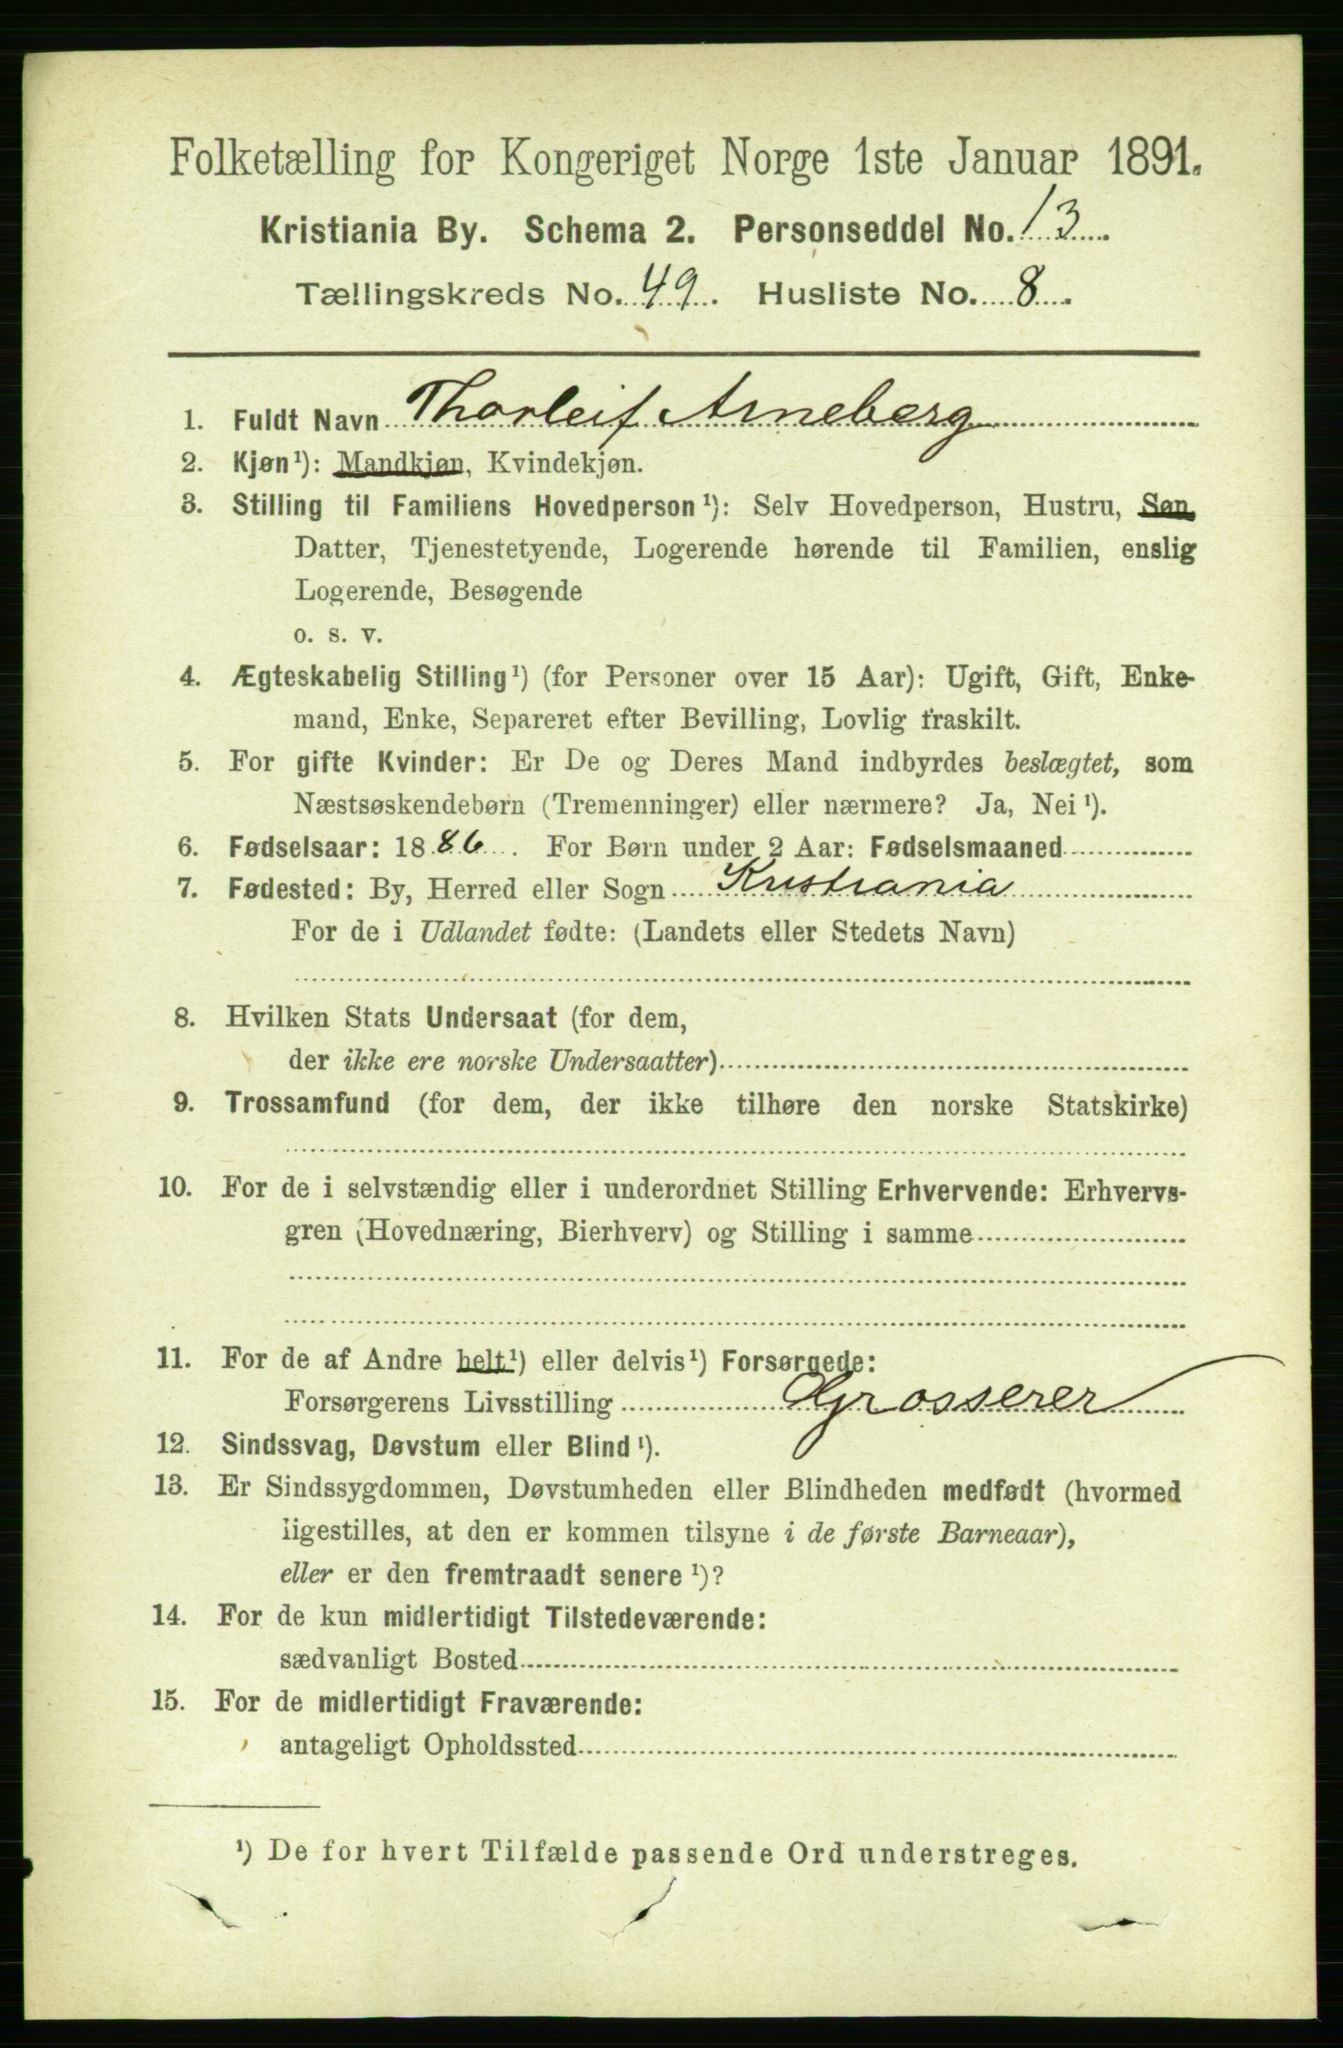 Folketælling for Kongeriget Norge 1ste Januar 1891.
Kristiania By. Schema 2. Personseddel No. 13.
Tællingskreds No. 49. Husliste No. 8.
1. Fuldt Navn Thorleif Arneberg
2. Kjøn¹): Mandkjøn, Kvindekjøn.
3. Stilling til Familiens Hovedperson¹): Selv Hovedperson, Hustru, Søn,
Datter, Tjenestetyende, Logerende hørende til Familien, enslig
Logerende, Besøgende
o. s. v.
4. Ægteskabelig Stilling¹) (for Personer over 15 Aar): Ugift, Gift, Enke-
mand, Enke, Separeret efter Bevilling, Lovlig fraskilt.
5. For gifte Kvinder: Er De og Deres Mand indbyrdes beslægtet, som
Næstsøskendebørn (Tremenninger) eller nærmere? Ja, Nei¹).
6. Fødselsaar: 1886. For Børn under 2 Aar: Fødselsmaaned
7. Fødested: By, Herred eller Sogn Kristiania
For de i Udlandet fødte: (Landets eller Stedets Navn)
8. Hvilken Stats Undersaat (for dem,
der ikke ere norske Undersaatter)
9. Trossamfund (for dem, der ikke tilhøre den norske Statskirke)
10. For de i selvstændig eller i underordnet Stilling Erhvervende: Erhvervs-
gren (Hovednæring, Bierhverv) og Stilling i samme
11. For de af Andre helt¹) eller delvis¹) Forsørgede:
Forsørgerens Livsstilling Grosserer
12. Sindssvag, Døvstum eller Blind¹).
13. Er Sindssygdommen, Døvstumheden eller Blindheden medfødt (hvormed
ligestilles, at den er kommen tilsyne i de første Barneaar),
eller er den fremtraadt senere¹)?
14. For de kun midlertidigt Tilstedeværende:
sædvanligt Bosted
15. For de midlertidigt Fraværende:
antageligt Opholdssted
¹) De for hvert Tilfælde passende Ord understreges.